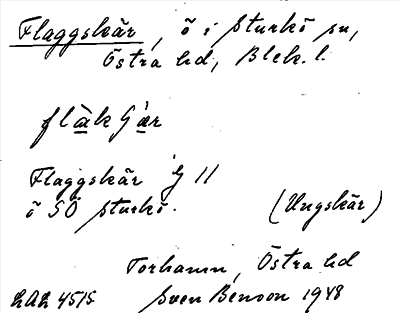 Flaggskär, ö i Sturkö sn,
Östra hd, Blek. l.
flakJär
Flaggskär G 11
ö SÖ Sturkö. (Ungskär)
Torhamn, Östra hd
LAL 4515 Sven Benson 1948